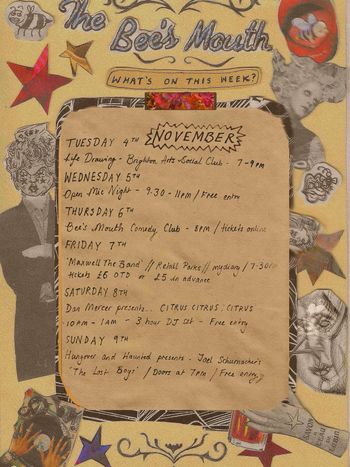 The
Bee's Mouth
WHAT'S ON THIS WEEK?
NOVEMBER
TUESDAY 4TH
Life Drawing - Brighton Arts Social Club - 7-9pm
WEDNESDAY 5TH
Open Mic Night - 9.30 - 11pm / Free entry
THURSDAY 6TH
Bee's Mouth Comedy Club - 8pm / tickets online
FRIDAY 7TH
'Maxwell The Band' // Retail Parks // mydiary / 7-30/
tickets £6 OTD or £5 in advance
SATURDAY 8TH
Dan Mercer presents.. CITRUS CITRUS CITRUS
10pm - 1am - 3 hour DJ set - Free entry
SUNDAY 9TH
Hangover and Haunted presents - Joel Schumacher's
'The Lost Boys' / Doors at 7pm / Free entry
SAVON